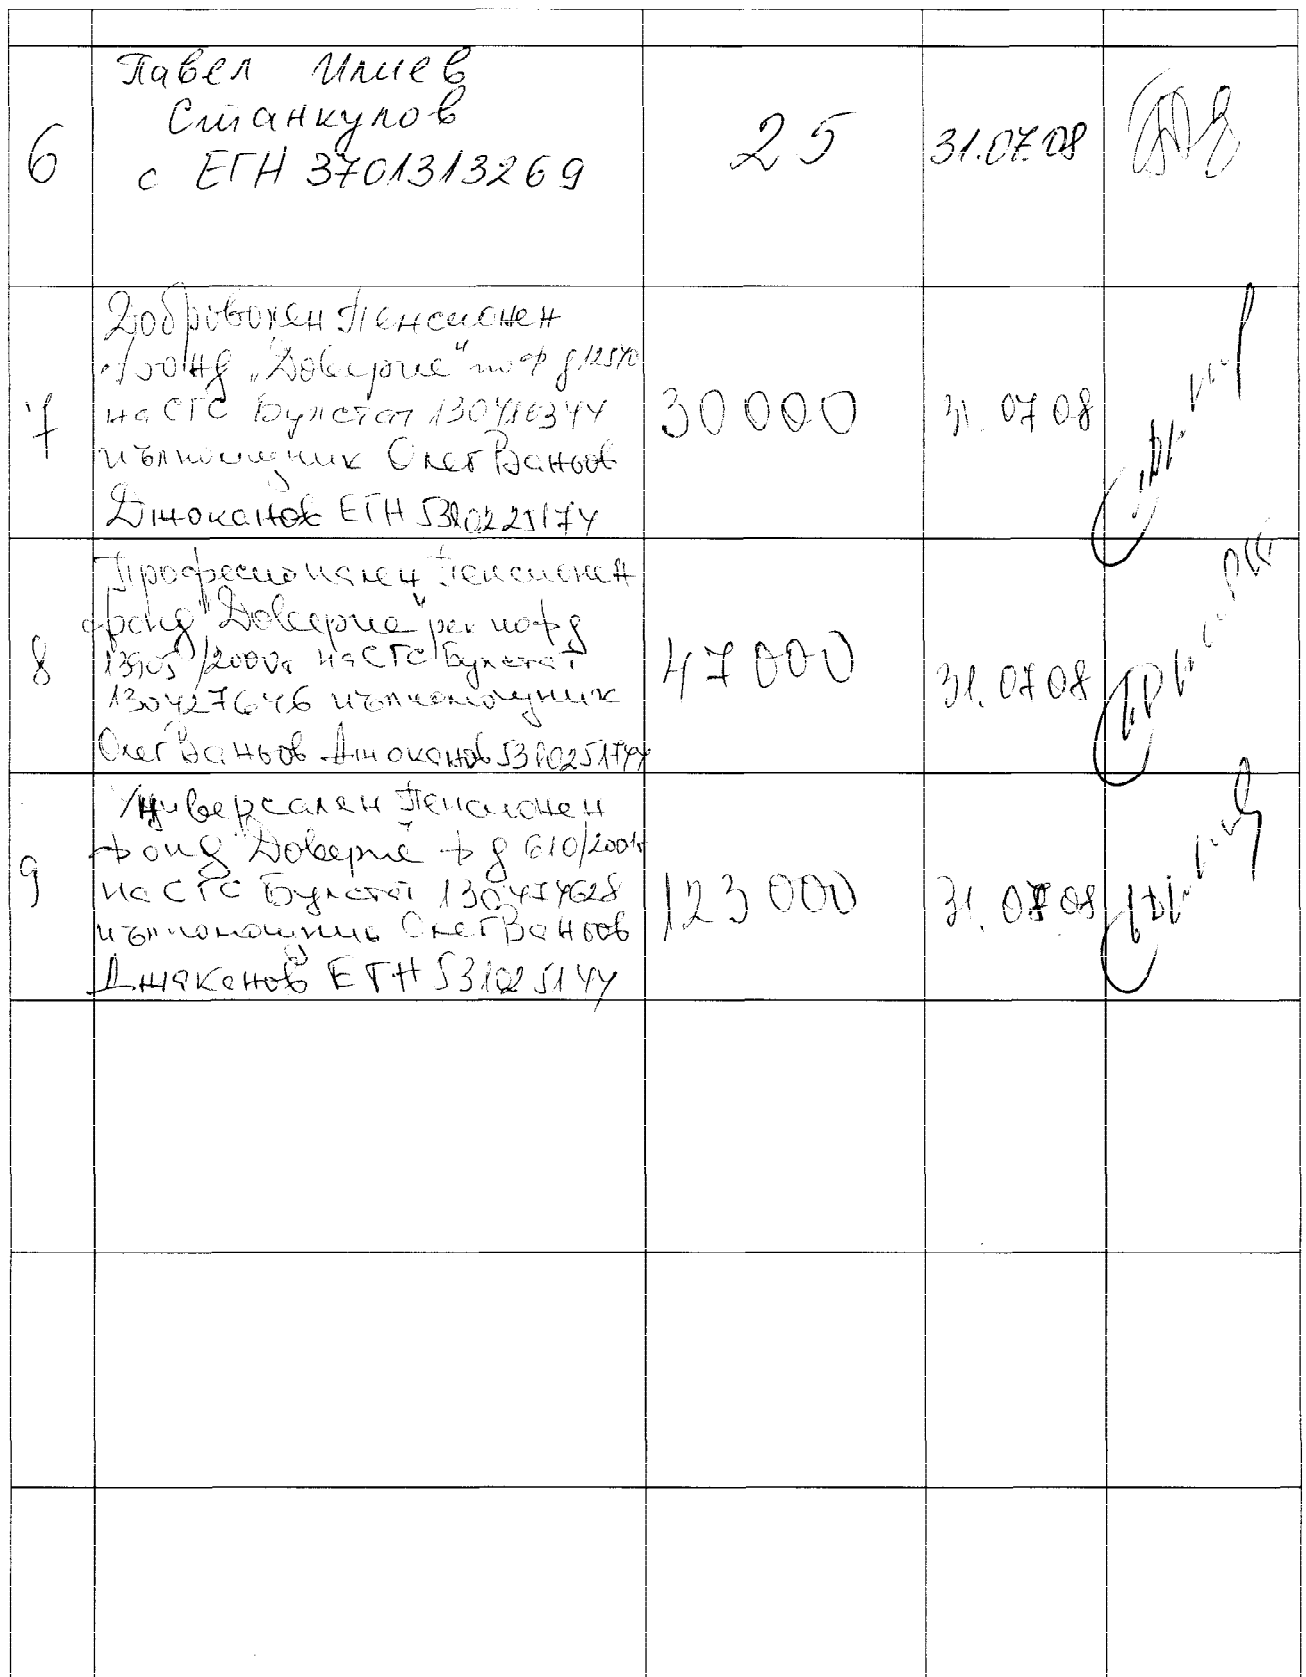 6
Павел Илиев
Станкулов
с ЕГН 3701313269
25
31.07.08
7
Доброволен Пенсионен
фонд „Доверие" по ф д
на СГС Булстат 130416344
пълномощник Олег Ваньов
ЕГН
30 000
31.07 08
8
Професионален Пенсионен
фонд "Доверие" рег по ф д
/2000г на СГС Булстат
130427646 пълномощник
Олег Ваньов
47 000
31.07 08
9
Универсален Пенсионен
фонд "Доверие" ф д 610/2001г
на СГС Булстат 130454628
пълномощник Олег Ваньов
ЕГН
123 000
31.07 08